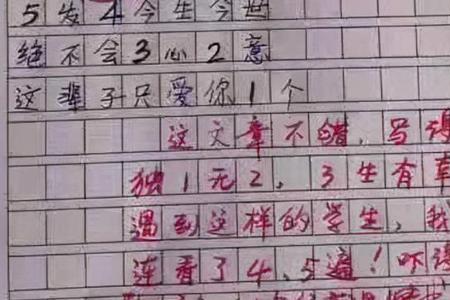 5发4今生今世
绝不会3心2意
这辈子只爱你1个
这文章不错，写得
独1无2，3生有幸
遇到这样的学生，我
连看了4、5遍！吓得